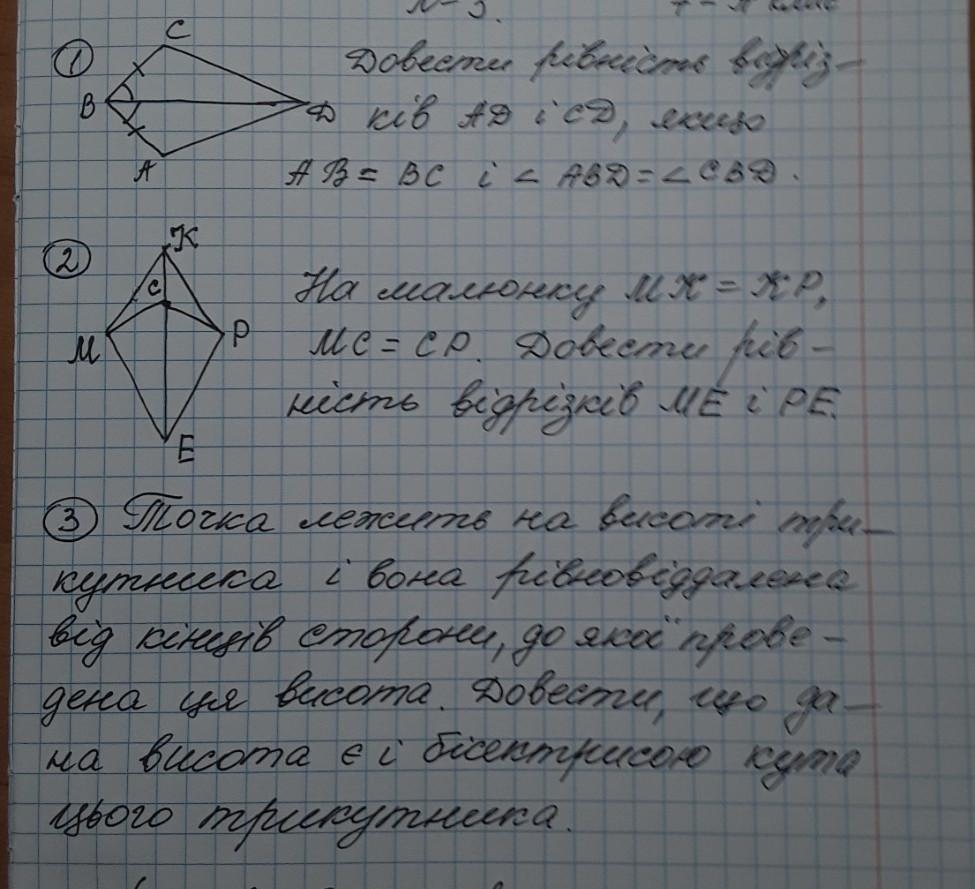 7 - А клас
1 Довести рівність відріз-
ків AD і CD, якщо
AB = BC і ∠ABD = ∠CBD.
C
B
D
A
2 На малюнку MK = KP,
MC = CP. Довести рів-
ність відрізків ME і PE.
K
C
M
P
E
3 Точка лежить на висоті три-
кутника і вона рівновіддалена
від кінців сторони, до якої прове-
дена ця висота. Довести, що да-
на висота є і бісектрисою кута
цього трикутника.